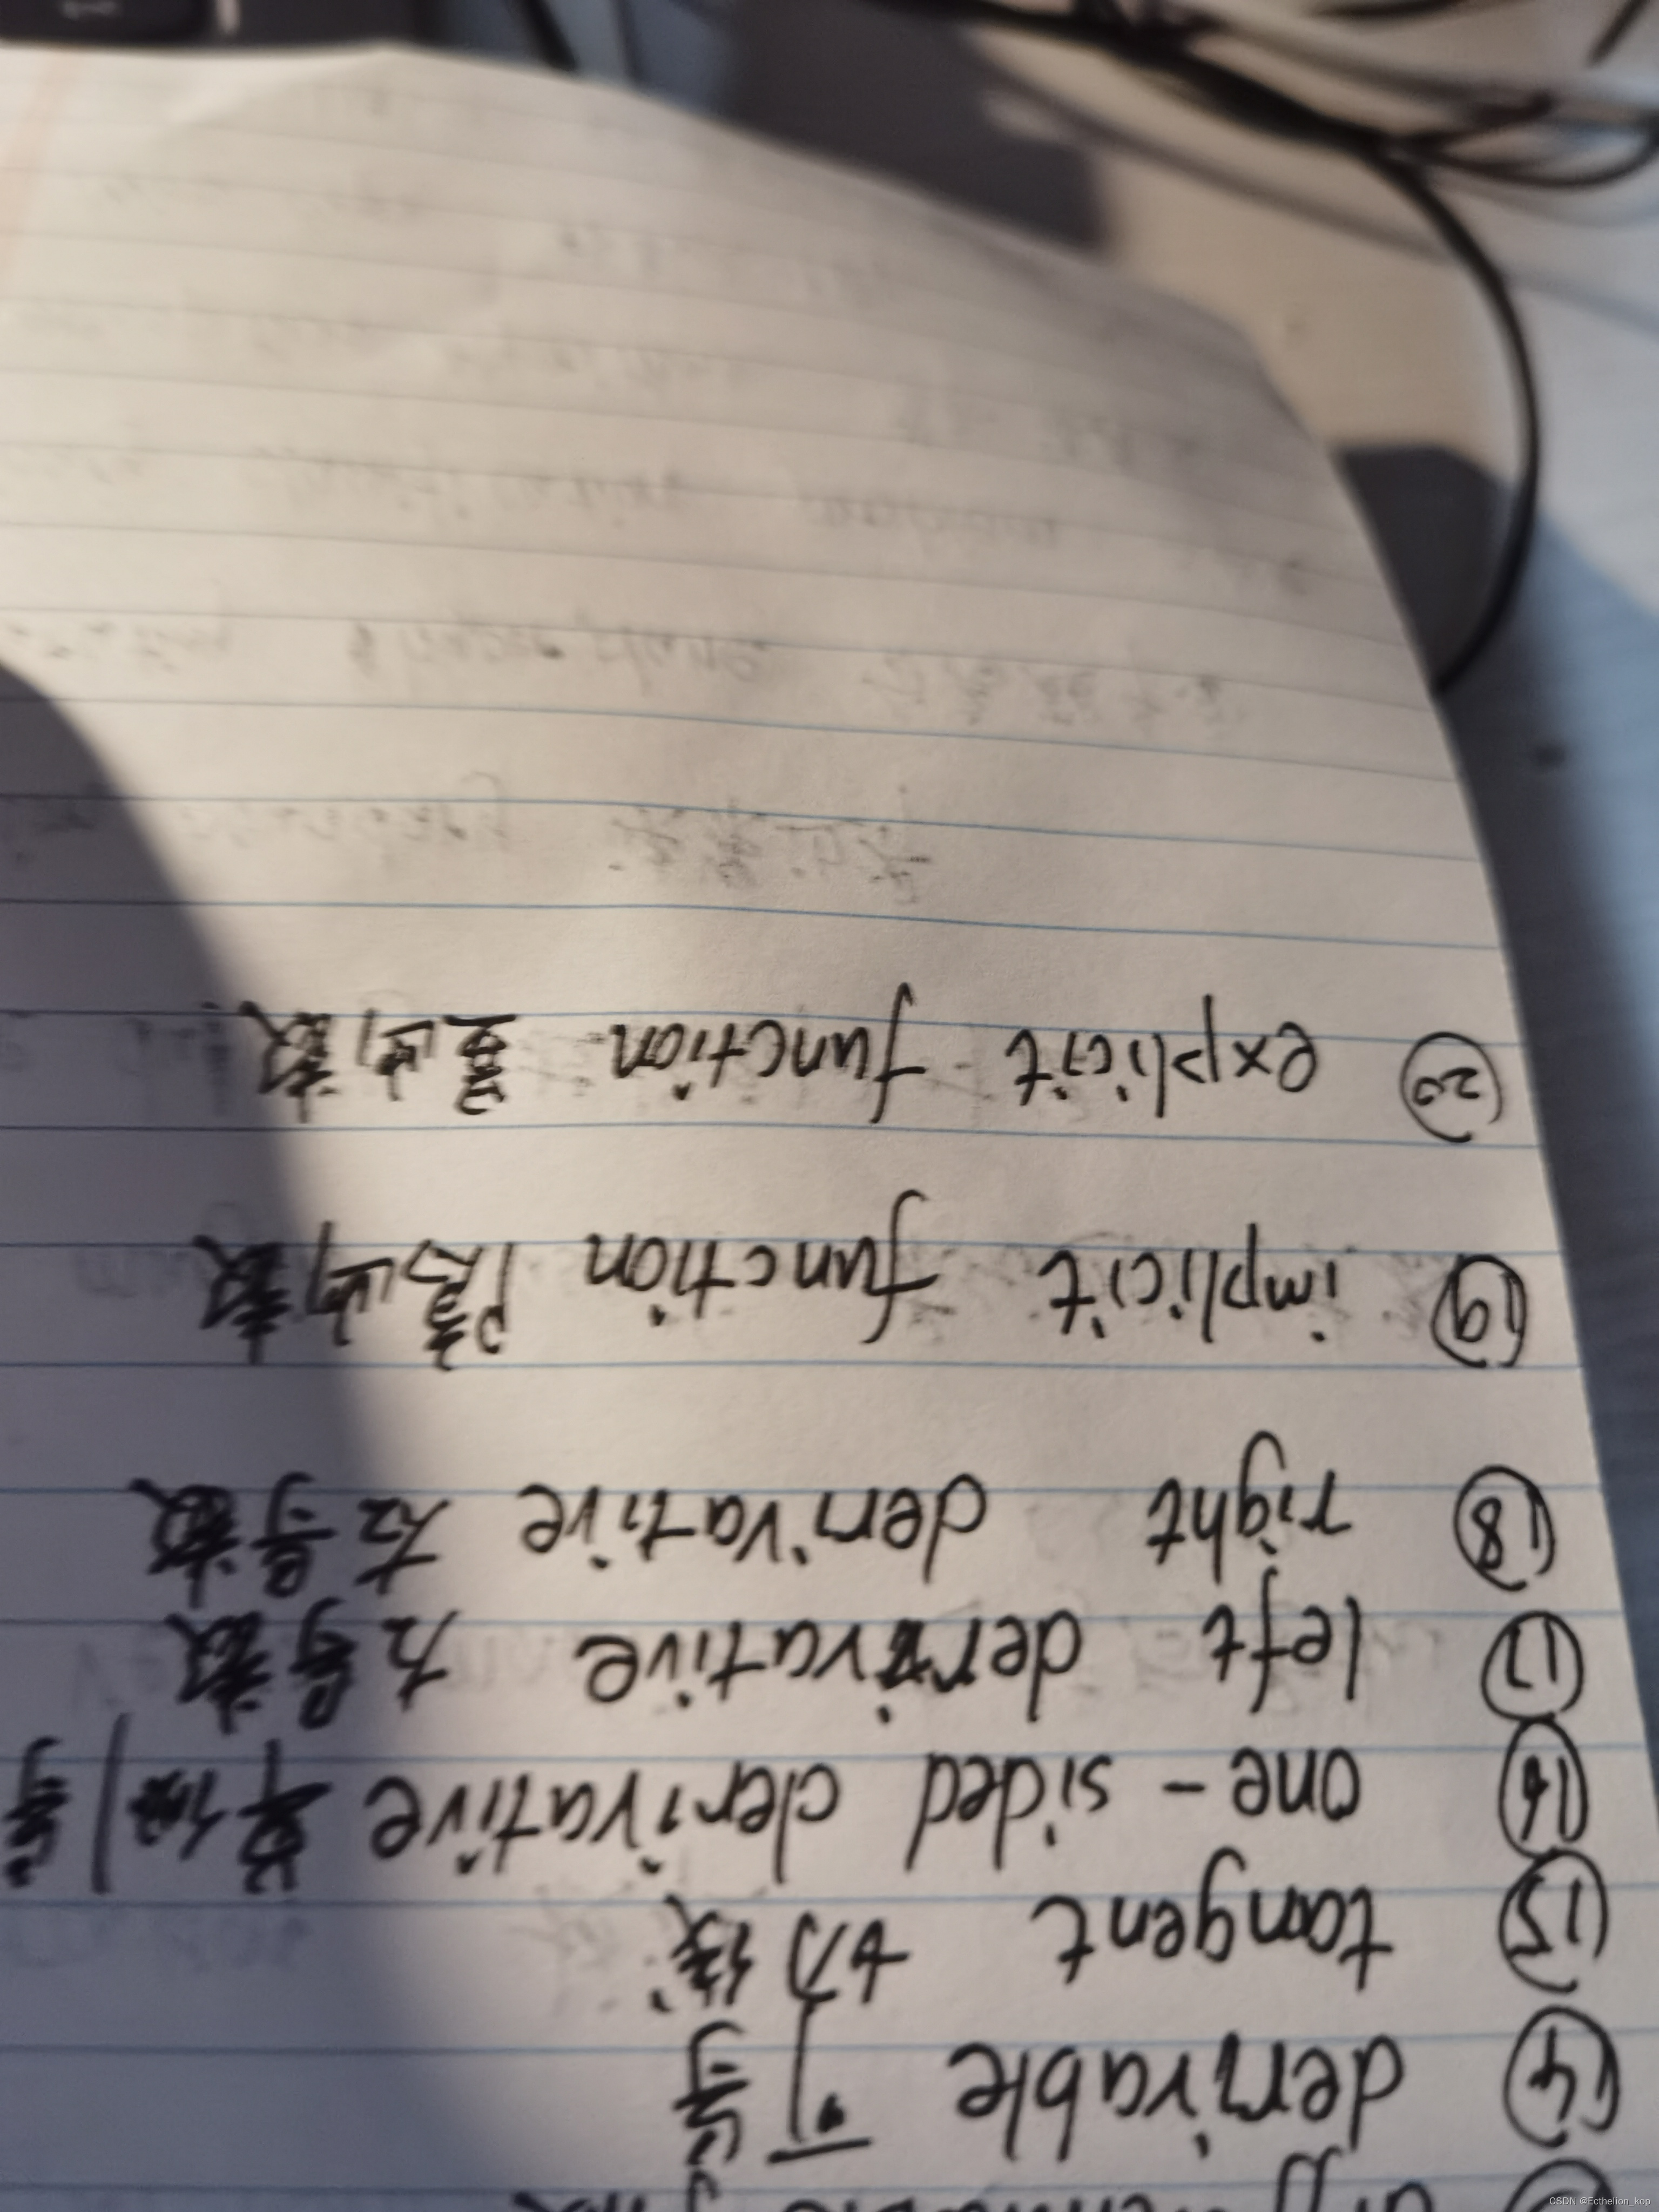 ⑭ derivable 可导
⑮ tangent 切线
⑯ one-sided derivative 单侧导
⑰ left derivative 左导数
⑱ right derivative 右导数
⑲ implicit function 隐函数
⑳ explicit function 显函数
CSDN @Ecthelion_kop